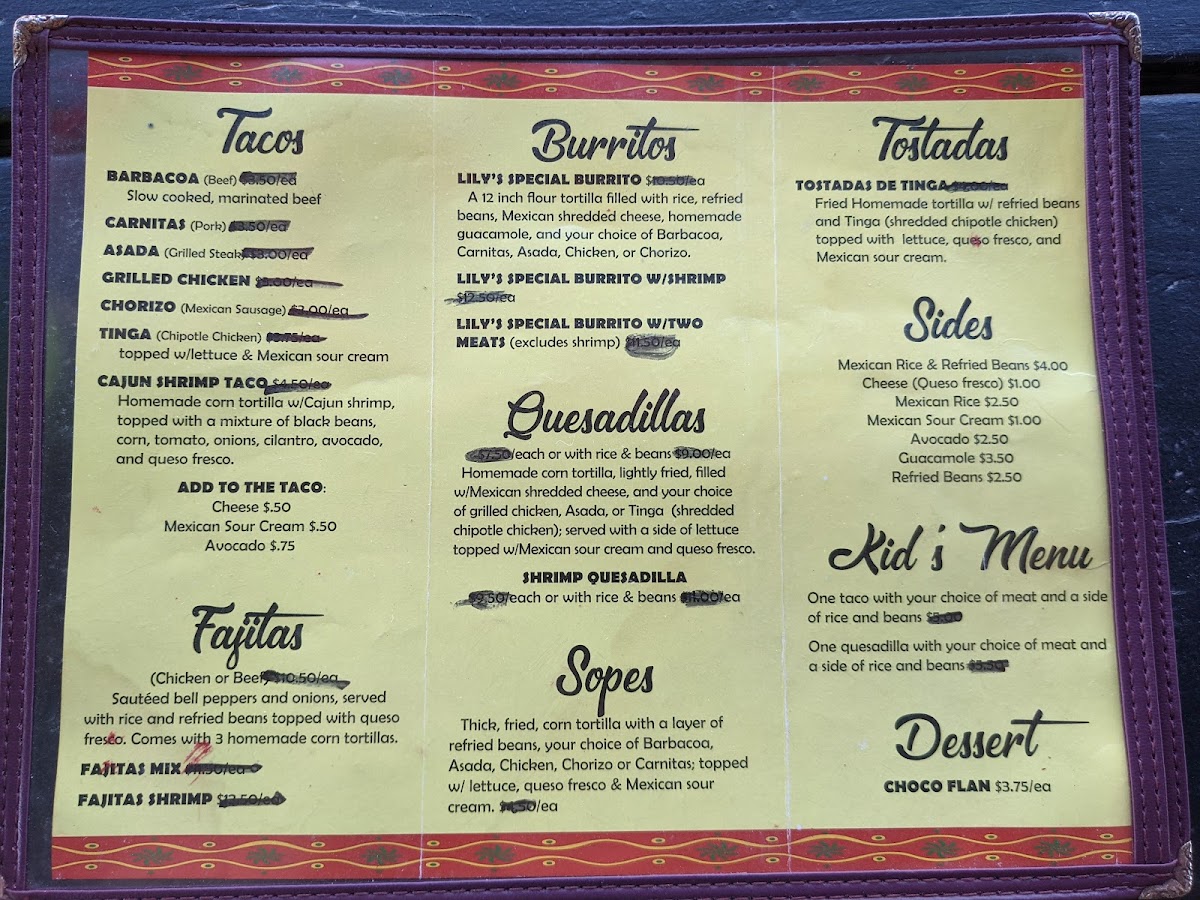 Tacos
BARBACOA (Beef) $3.50/ea
Slow cooked, marinated beef
CARNITAS (Pork) $3.50/ea
ASADA (Grilled Steak) $3.00/ea
GRILLED CHICKEN $3.00/ea
CHORIZO (Mexican Sausage) $3.00/ea
TINGA (Chipotle Chicken) $3.75/ea
topped w/lettuce & Mexican sour cream
CAJUN SHRIMP TACO $4.50/ea
Homemade corn tortilla w/Cajun shrimp,
topped with a mixture of black beans,
corn, tomato, onions, cilantro, avocado,
and queso fresco.
ADD TO THE TACO:
Cheese $.50
Mexican Sour Cream $.50
Avocado $.75
Fajitas
(Chicken or Beef) $10.50/ea
Sautéed bell peppers and onions, served
with rice and refried beans topped with queso
fresco. Comes with 3 homemade corn tortillas.
FAJITAS MIX $11.50/ea
FAJITAS SHRIMP $12.50/ea
Burritos
LILY'S SPECIAL BURRITO $10.50/ea
A 12 inch flour tortilla filled with rice, refried
beans, Mexican shredded cheese, homemade
guacamole, and your choice of Barbacoa,
Carnitas, Asada, Chicken, or Chorizo.
LILY'S SPECIAL BURRITO W/SHRIMP
$12.50/ea
LILY'S SPECIAL BURRITO W/TWO
MEATS (excludes shrimp) $11.50/ea
Quesadillas
$7.50/each or with rice & beans $9.00/ea
Homemade corn tortilla, lightly fried, filled
w/Mexican shredded cheese, and your choice
of grilled chicken, Asada, or Tinga (shredded
chipotle chicken); served with a side of lettuce
topped w/Mexican sour cream and queso fresco.
SHRIMP QUESADILLA
$9.50/each or with rice & beans $11.00/ea
Sopes
Thick, fried, corn tortilla with a layer of
refried beans, your choice of Barbacoa,
Asada, Chicken, Chorizo or Carnitas; topped
w/ lettuce, queso fresco & Mexican sour
cream. $4.50/ea
Tostadas
TOSTADAS DE TINGA $4.00/ea
Fried Homemade tortilla w/ refried beans
and Tinga (shredded chipotle chicken)
topped with lettuce, queso fresco, and
Mexican sour cream.
Sides
Mexican Rice & Refried Beans $4.00
Cheese (Queso fresco) $1.00
Mexican Rice $2.50
Mexican Sour Cream $1.00
Avocado $2.50
Guacamole $3.50
Refried Beans $2.50
Kid's Menu
One taco with your choice of meat and a side
of rice and beans $5.00
One quesadilla with your choice of meat and
a side of rice and beans $5.50
Dessert
CHOCO FLAN $3.75/ea